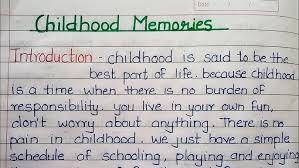 Date
Childhood Memories
Introduction :- childhood is said to be the
best part of life. because childhood
is a time when there is no burden of
responsibility. you live in your own fun,
don't worry about anything. There is no
pain in childhood. we just have a simple
schedule of schooling, playing and enjoying